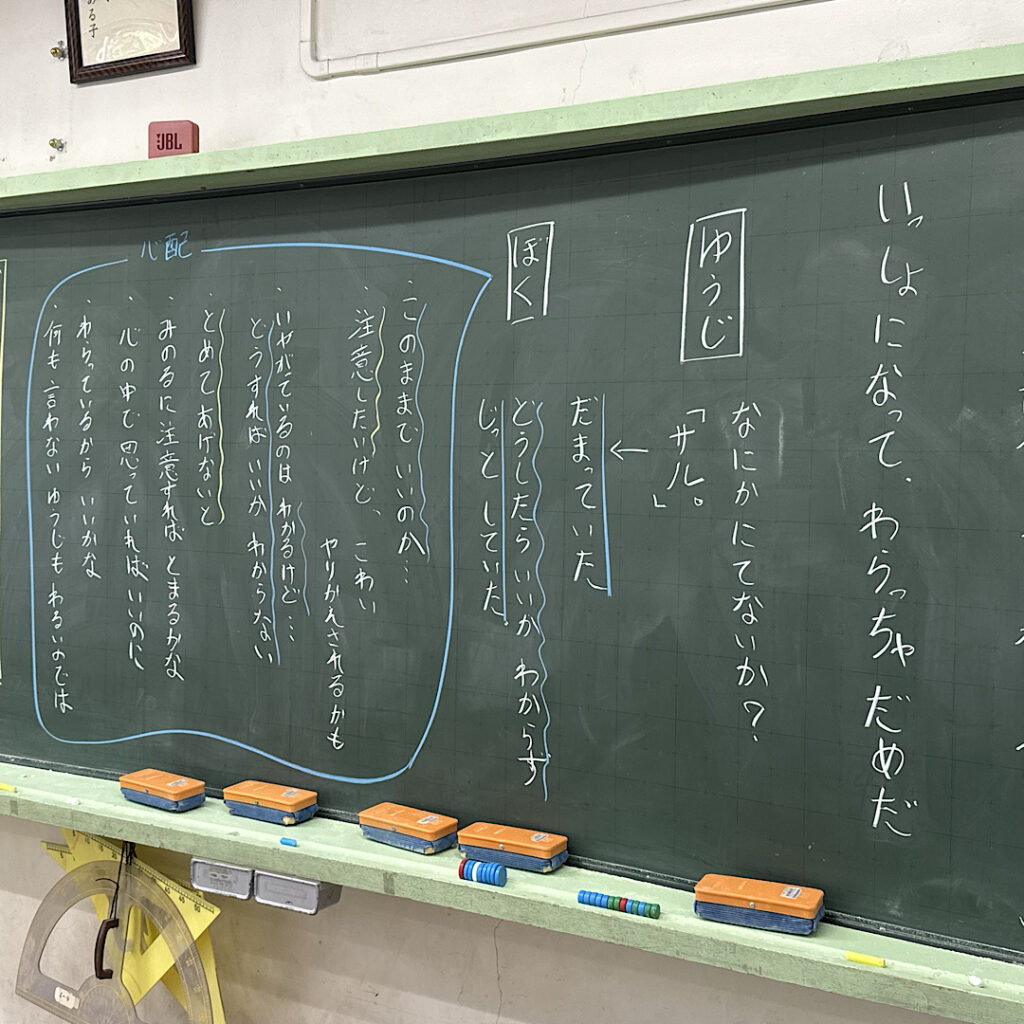 いっしょになって、わらっちゃだめだ
ゆうじ
なにかにてないか?
「サル。」
←
だまっていた
ぼく
どうしたらいいか わからず
じっとしていた
心配
・このままで いいのか…
・注意したいけど、こわい
やりかえされるかも
・いやがているのは わかるけど…
どうすれば いいか わからない
・とめてあげないと
・みのるに注意すれば とまるかな
・心の中で思っていれば いいのに
・わらっているから いいかな
・何も言わない ゆうじも わるいのでは
JBL
る子